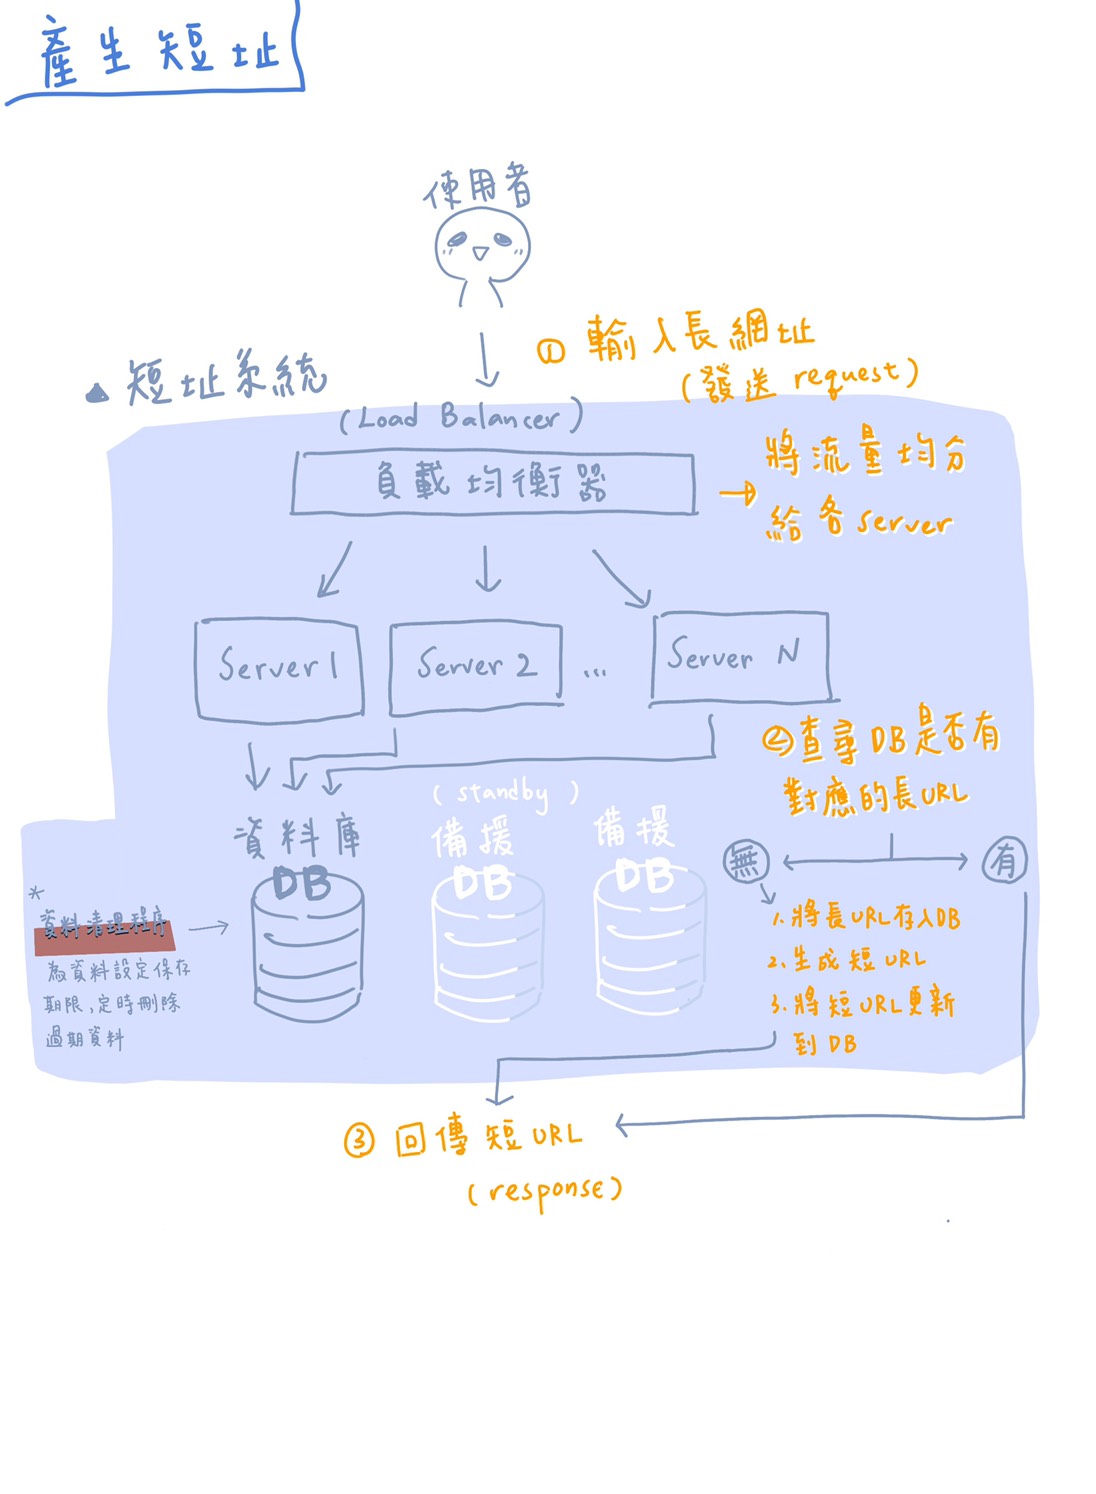 產生短址
使用者
① 輸入長網址
(發送 request)
▲ 短址系統
(Load Balancer)
負載均衡器
→ 將流量均分
給各server
Server 1
Server 2
...
Server N
② 查尋DB是否有
對應的長URL
無
有
1. 將長URL存入DB
2. 生成短URL
3. 將短URL更新
到DB
資料庫
DB
(standby)
備援
DB
備援
DB
*
資料清理程序
為資料設定保存
期限,定時刪除
過期資料
③ 回傳短URL
(response)